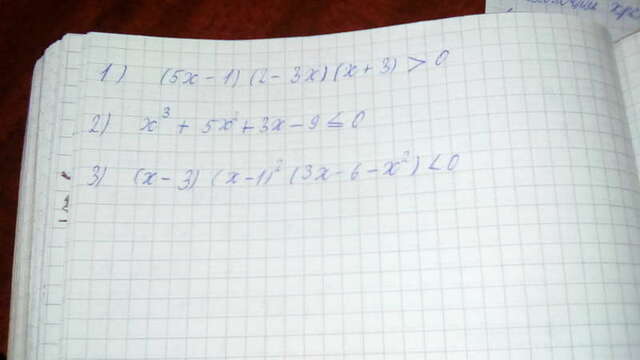 1) (5x - 1)(2 - 3x)(x + 3) > 0
2) x³ + 5x² + 3x - 9 ≤ 0
3) (x - 3)(x - 1)² (3x - 6 - x²) < 0